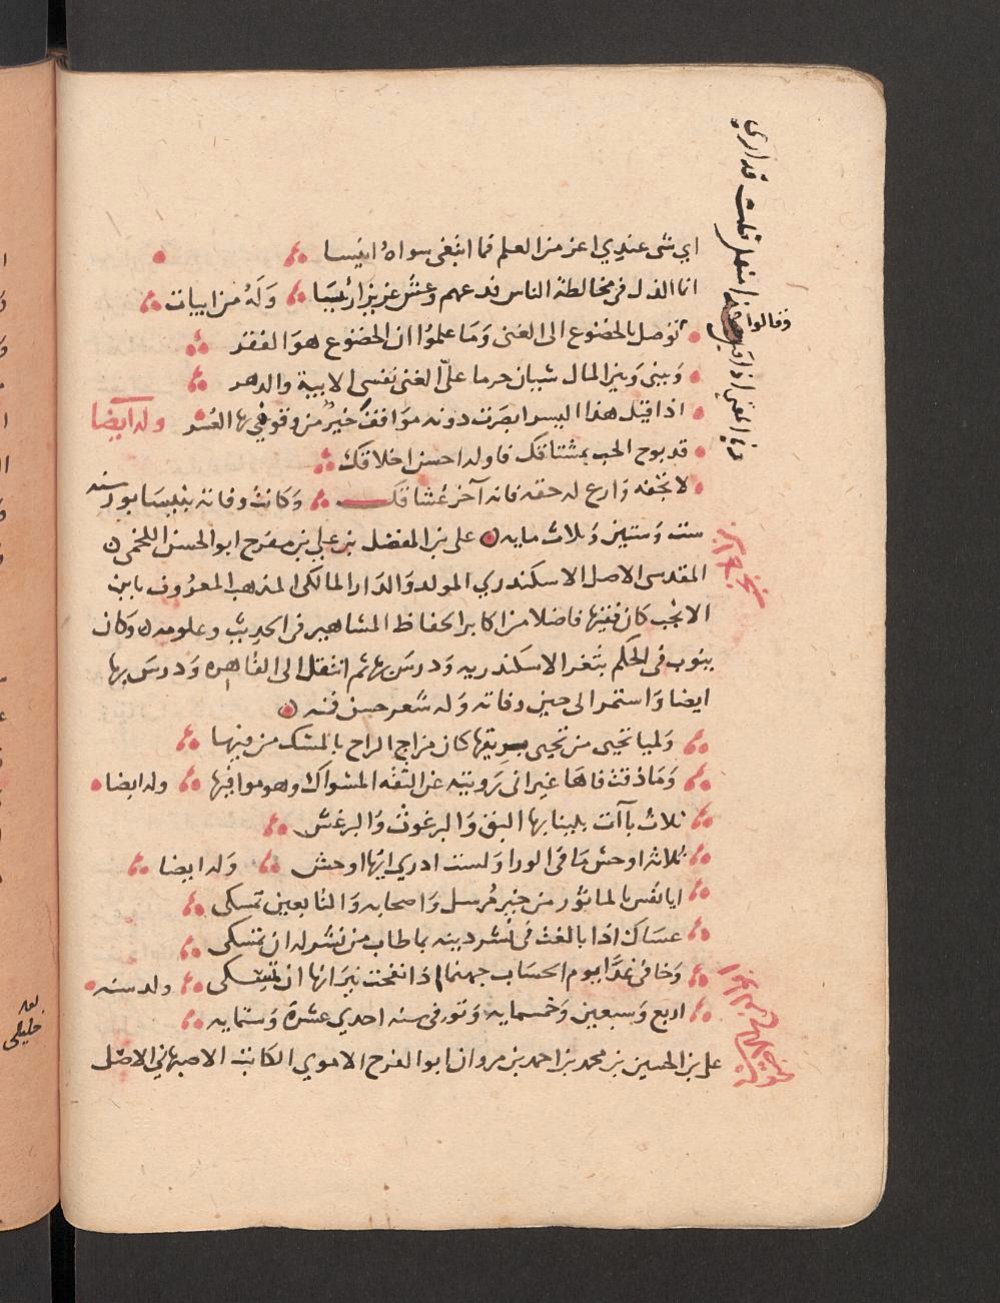 اي شى عندي اعز من العلم فما ابتغى سواهُ انيسا
انما الذل فى مخالطة الناس فدعهم وعش عزيزا رئيسا وَلَهُ من ابيات
توصل بالخضوع الى الغنى وَمَا علموُا ان الخضوع هوَ الفقر
وَبينى وَبين المال شيبان حرما علىّ الغنى نفسى الابية والدهر
اذا قيل هذا اليسر ابصَرت دونه موَاقف خيرٌ من وقوفي بها العُسر وله ايضا
قد بوح الحب بمشتاقك فاوله احسن اخلاقك
لا تجفه وَارع له حقه فانه آخر عُشاقك وَكانت وفاته بنيسَابور سنه
ست وَستين وَثلاث مايه على بن المفضل بن علي بن مفرح ابو الحسن اللخمى
المقدسى الاصل الاسكندري المولد وَالدَار المالكى المذهب المعرُوف بابن
الانجب كان فقيها فاضلا من اكابر الحفاظ المشاهير فى الحديث وعلومه وَكان
ينوب فى الحكم بثغر الاسكندريه وَدرسَ بها ثم انتقل الى القاهره وَدرسَ بها
ايضا وَاستمر الى حين وفاته وَله شعر حسن فمنه
وَلميا تحيى من تحيى بريقها كان مزاج الراح بالمسك من فيها
وَمَا ذقت فاهَا غير انى رَويته عن الثقه المسواك وهو موافيها وله ايضا
ثلاث بآآت بلينا بها البق وَالبرغوث وَالبرغش
ثلاثه اوحش مَا فى الورا وَلست ادري ايّها اوحش وَله ايضا
ايا نفس بالماثور من خير مُرسل وَاصحابه وَالتابعين تمسكى
عسَاك اذا بالغت فى نشر دينه بما طاب من نشر له ان تمسكى
وَخافى غدًا يوم الحسَاب جهنما اذا نفحت نيرَانها ان تمسّكى ولد سنه
اربع وَسبعين وَخمسمايه وَتوفى سنه احدي عشرة وَستمايه
على بن الحسين بن محمد بن احمد بن مروان ابو الفرح الاموي الكاتب الاصبهاني الاصل
وقالوا